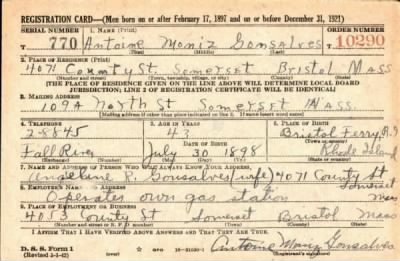 REGISTRATION CARD—(Men born on or after February 17, 1897 and on or before December 31, 1921)
SERIAL NUMBER 1. NAME (Print) ORDER NUMBER
770 Antoine Moniz Gonsalves 10290
(First) (Middle) (Last)
2. PLACE OF RESIDENCE (Print)
4071 County St Somerset Bristol Mass
(Number and street) (Town, township, village, or city) (County) (State)
[THE PLACE OF RESIDENCE GIVEN ON THE LINE ABOVE WILL DETERMINE LOCAL BOARD
JURISDICTION; LINE 2 OF REGISTRATION CERTIFICATE WILL BE IDENTICAL]
3. MAILING ADDRESS
109A North St Somerset Mass.
[Mailing address if other than place indicated on line 2. If same insert word same]
4. TELEPHONE 5. AGE IN YEARS 6. PLACE OF BIRTH
2-8845 43 Bristol Ferry R.I
DATE OF BIRTH (Town or county)
Fall River July 30 1898 Rhode Island
(Exchange) (Number) (Mo.) (Day) (Yr.) (State or country)
7. NAME AND ADDRESS OF PERSON WHO WILL ALWAYS KNOW YOUR ADDRESS
Angeline R. Gonsalves (wife) 4071 County St
Somerset
8. EMPLOYER'S NAME AND ADDRESS
Mass
Operates own gas station
9. PLACE OF EMPLOYMENT OR BUSINESS
4053 County St Somerset Bristol Mass
(Number and street or R. F. D. number) (Town) (County) (State)
I AFFIRM THAT I HAVE VERIFIED ABOVE ANSWERS AND THAT THEY ARE TRUE.
D. S. S. Form 1
(Revised 4-1-42)
Antoine Moniz Gonsalves